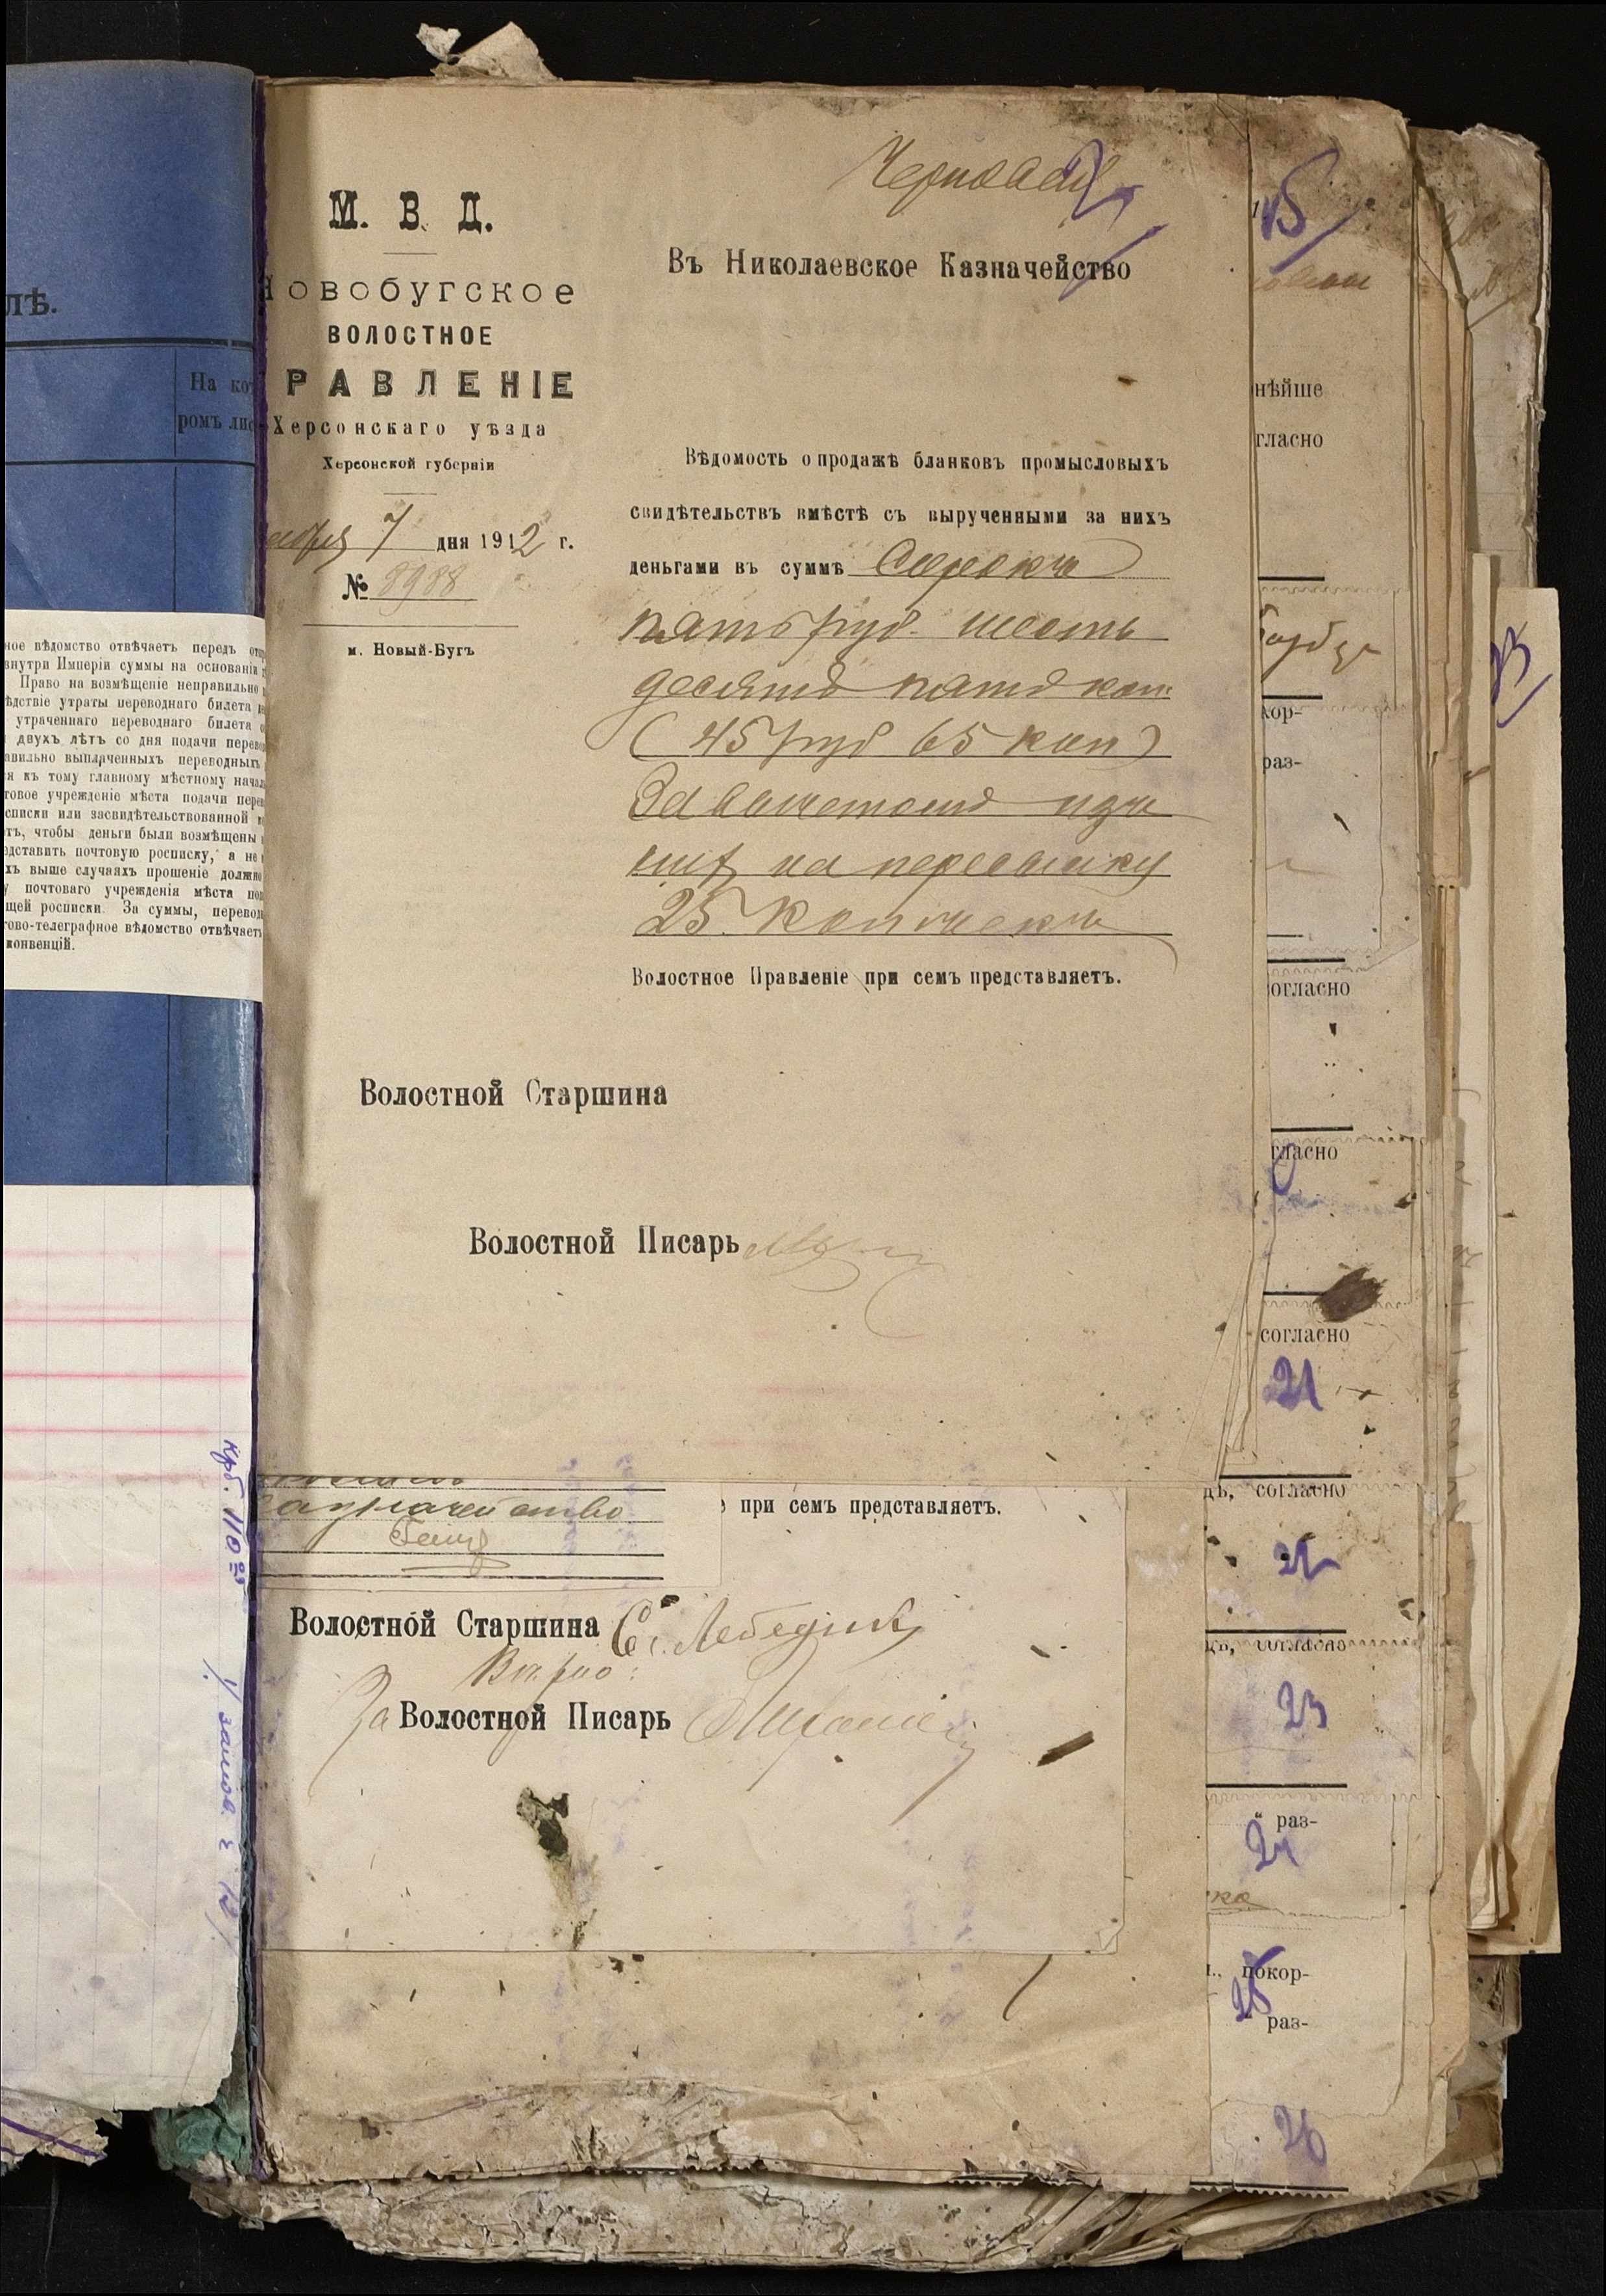 Черновая
2
М. В. Д.
Новобугское
ВОЛОСТНОЕ
РАВЛЕНІЕ
Херсонскаго уѣзда
Херсонской губерніи
7 дня 1912 г.
№ 8988
м. Новый-Бугъ
Въ Николаевское Казначейство
Вѣдомость о продажѣ бланковъ промысловыхъ
свидѣтельствъ вмѣстѣ съ вырученными за нихъ
деньгами въ суммѣ Сорокъ
пять руб. шесть
десятъ пять коп.
(45 руб 65 коп)
За вычетомъ изъ
нихъ на пересылку
25 копѣекъ
Волостное Правленіе при семъ представляетъ.
Волостной Старшина
Волостной Писарь
азначейство
е при семъ представляетъ.
Волостной Старшина С. Лебедин
Вѣрно:
За Волостной Писарь
лѣ.
На ко
ромъ лис
ное вѣдомство отвѣчаетъ передъ отп
внутри Имперіи суммы на основаніи
Право на возмѣщеніе неправильно
ѣдствіе утраты переводнаго билета
утраченнаго переводнаго билета
двухъ лѣтъ со дня подачи перево
авильно выплаченныхъ переводныхъ
я къ тому главному мѣстному начал
товое учрежденіе мѣста подачи перев
списки или засвидѣтельствованной
тъ, чтобы деньги были возмѣщены
едставить почтовую росписку, а не
хъ выше случаяхъ прошеніе должно
у почтоваго учрежденія мѣста под
щей росписки. За суммы, перевод
тово-телеграфное вѣдомство отвѣчаетъ
конвенцій.
15
нѣйше
гласно
кор-
раз-
огласно
гласно
согласно
21
дъ, согласно
22
дъ, согласно
23
" раз-
24
ка
покор-
25
раз-
26